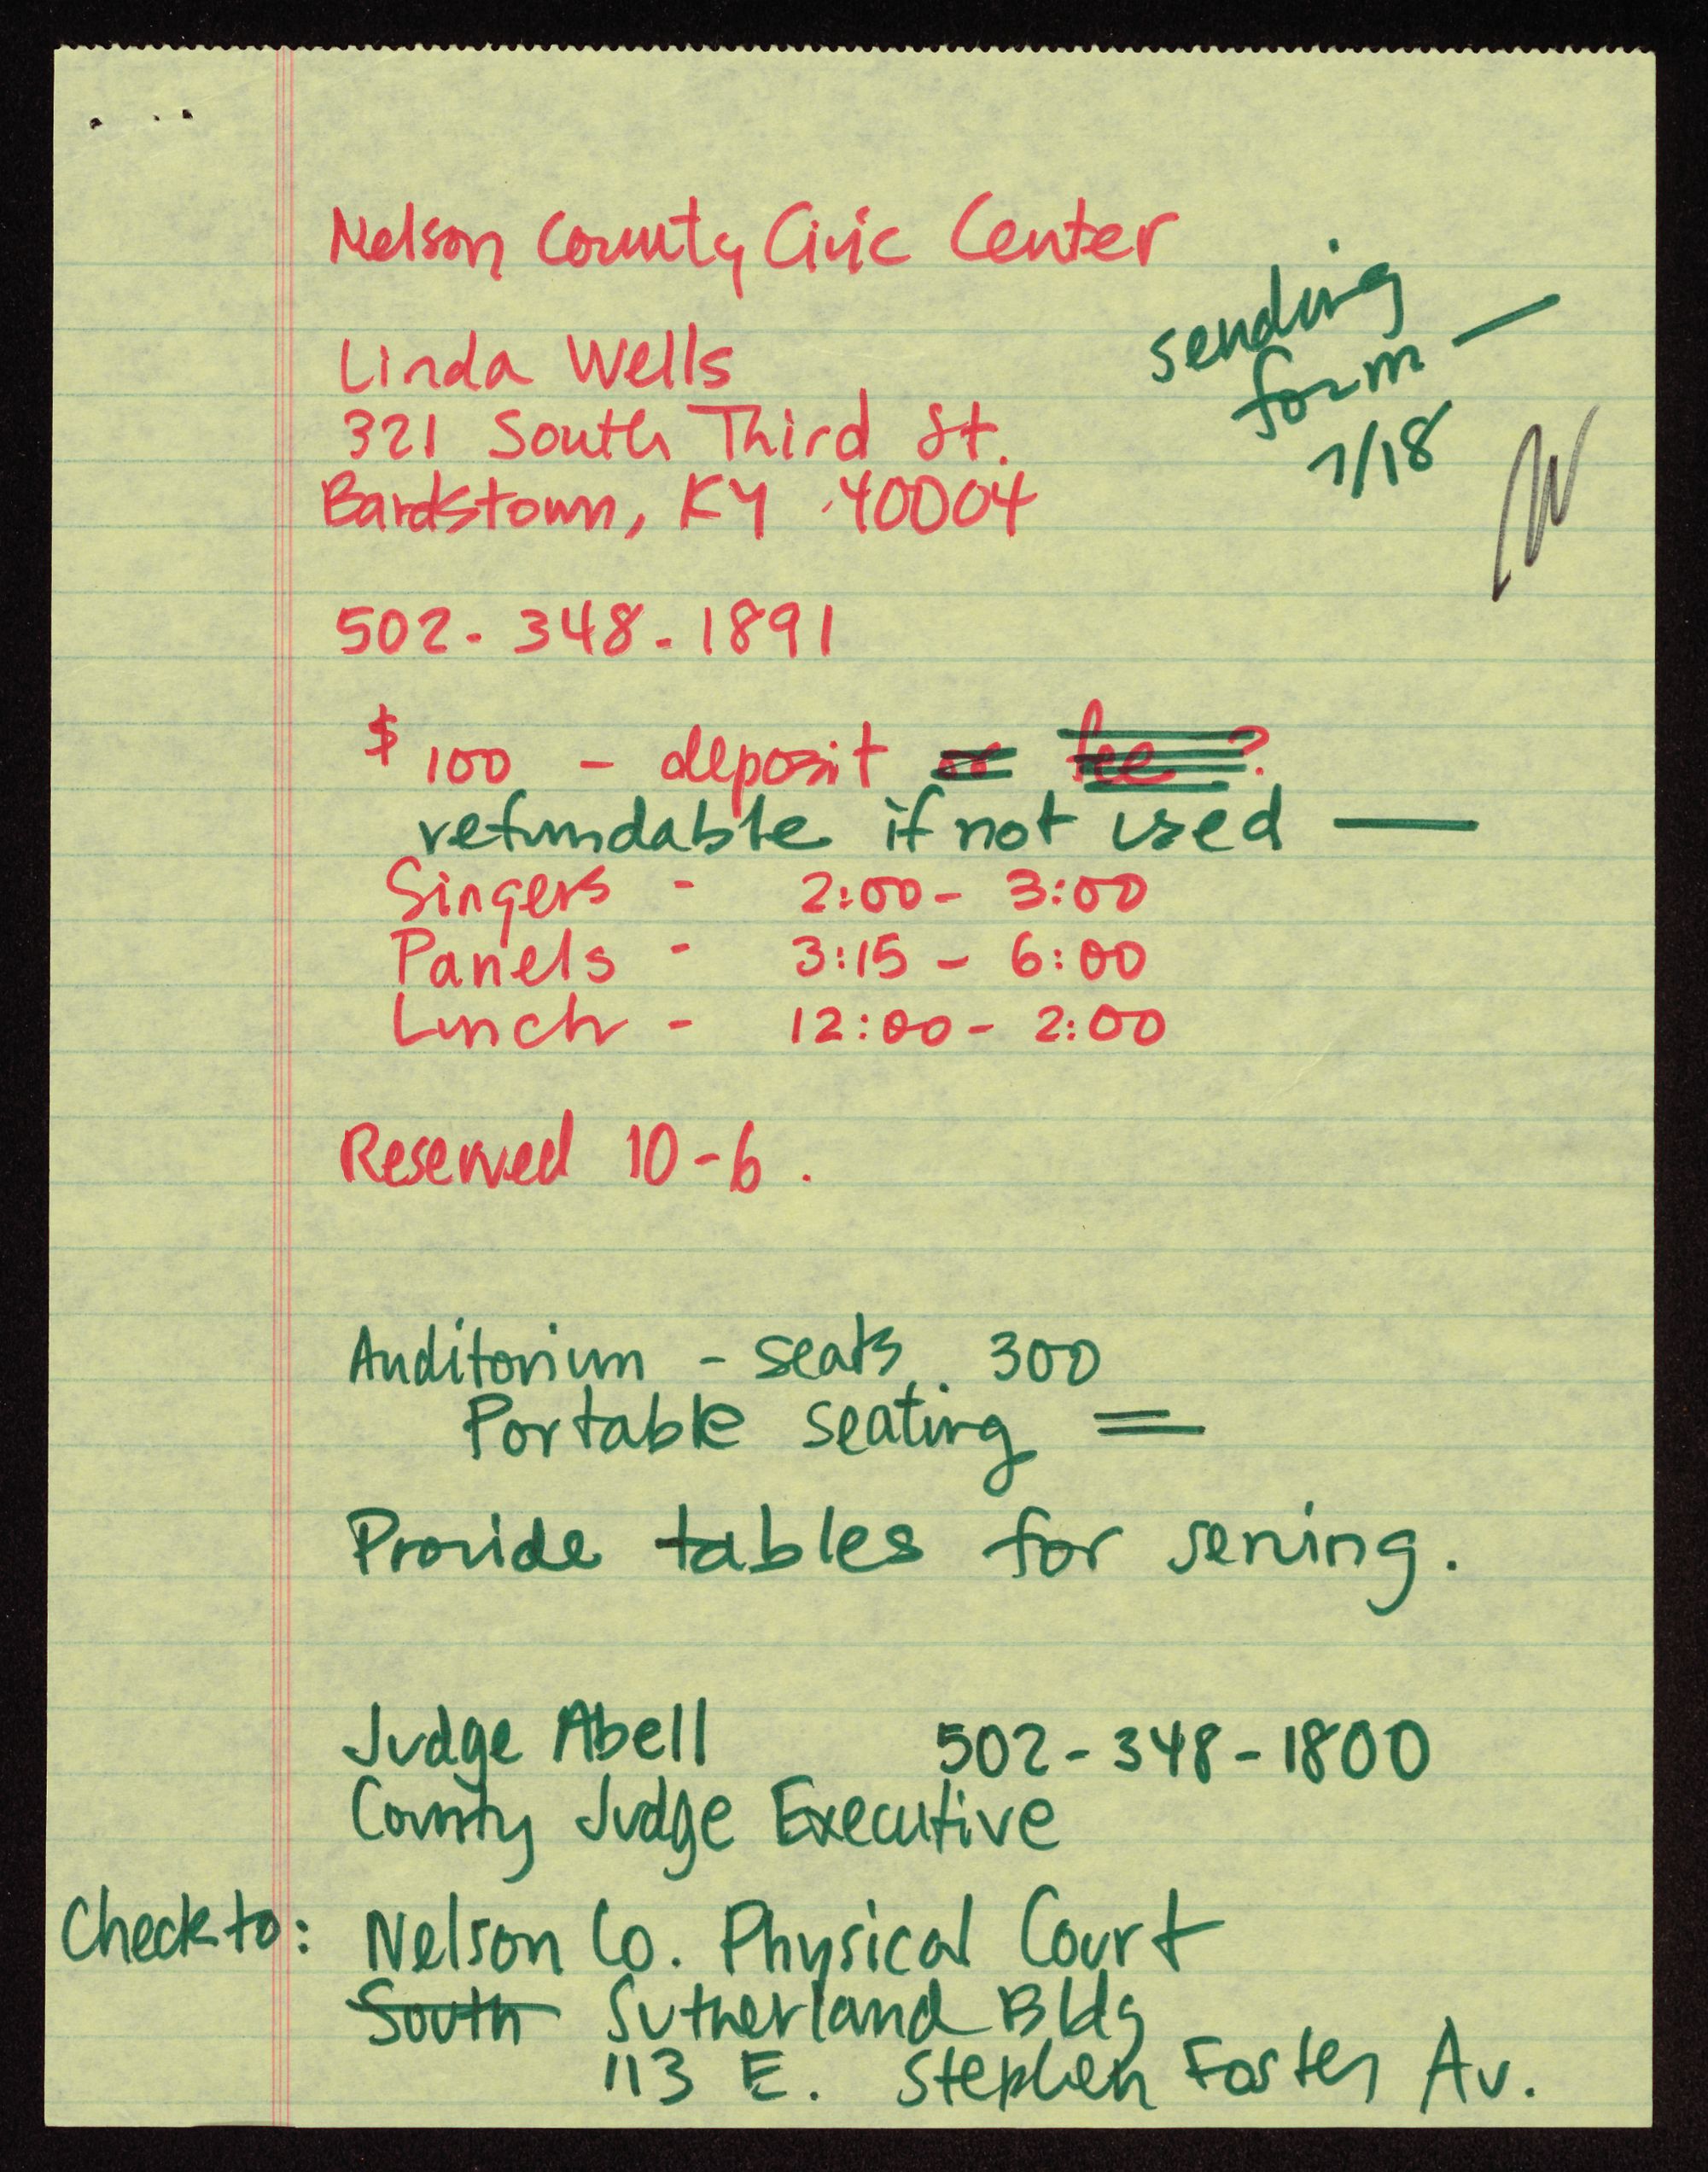 Nelson County Civic Center
sending
form —
7/18
Linda Wells
321 South Third St.
Bardstown, KY 40004
502-348-1891
$100 - deposit or fee?
refundable if not used —
Singers - 2:00 - 3:00
Panels - 3:15 - 6:00
Lunch - 12:00 - 2:00
Reserved 10-6.
Auditorium - seats 300
Portable seating =
Provide tables for serving.
Judge Abell 502-348-1800
County Judge Executive
Check to: Nelson Co. Physical Court
South Sutherland Bldg
113 E. Stephen Foster Av.